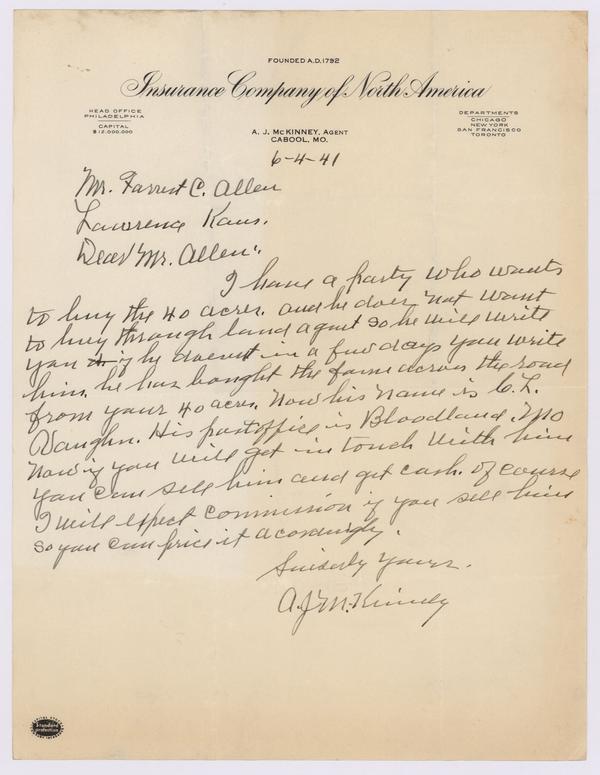 FOUNDED A.D. 1792
Insurance Company of North America
HEAD OFFICE
PHILADELPHIA
CAPITAL
$12,000,000
DEPARTMENTS
CHICAGO
NEW YORK
SAN FRANCISCO
TORONTO
A. J. McKINNEY, AGENT
CABOOL, MO.
6-4-41
Mr. Forrest C. Allen
Lawrence Kans.
Dear Mr. Allen:
I have a party who wants
to buy the 40 acres. and he does not want
to buy through land agent so he will write
you if he doesent in a few days you write
him. he has bought the farm across the road
from your 40 acres. Now his name is C. L.
Vaughn. His postoffice is Bloodland Mo
Now if you will get in touch with him
you can sell him and get cash. of course
I will expect commission if you sell him
so you can price it acordingly.
Sincerly yours.
A.J. McKinney
Standard
protection